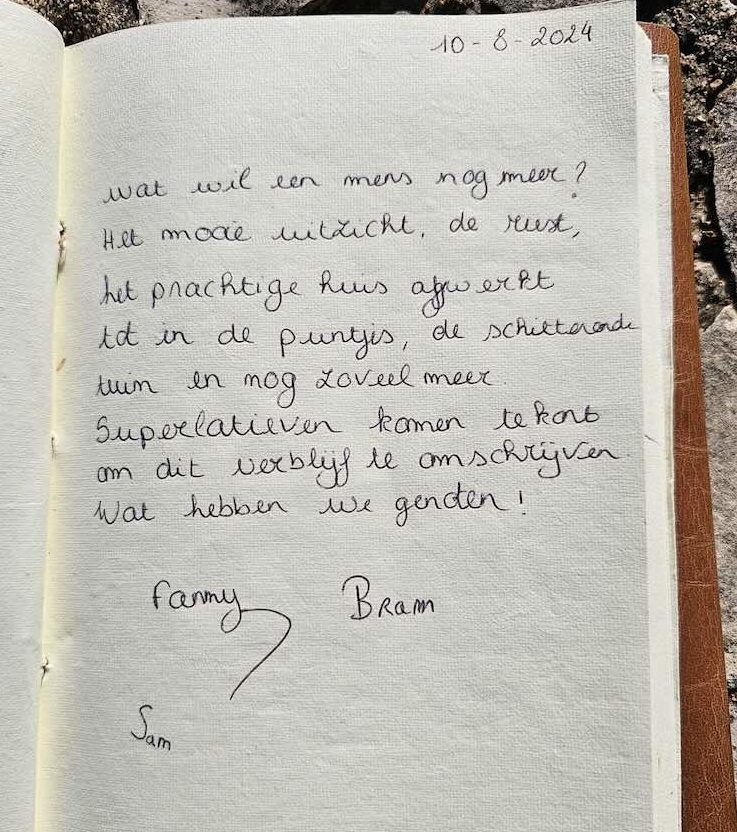 10-8-2024
wat wil een mens nog meer?
Het mooie uitzicht, de rust,
het prachtige huis afgewerkt
tot in de puntjes, de schitterende
tuin en nog zoveel meer.
Superlatieven komen te kort
om dit verblijf te omschrijven.
Wat hebben we genoten!
Fanny Bram
Sam